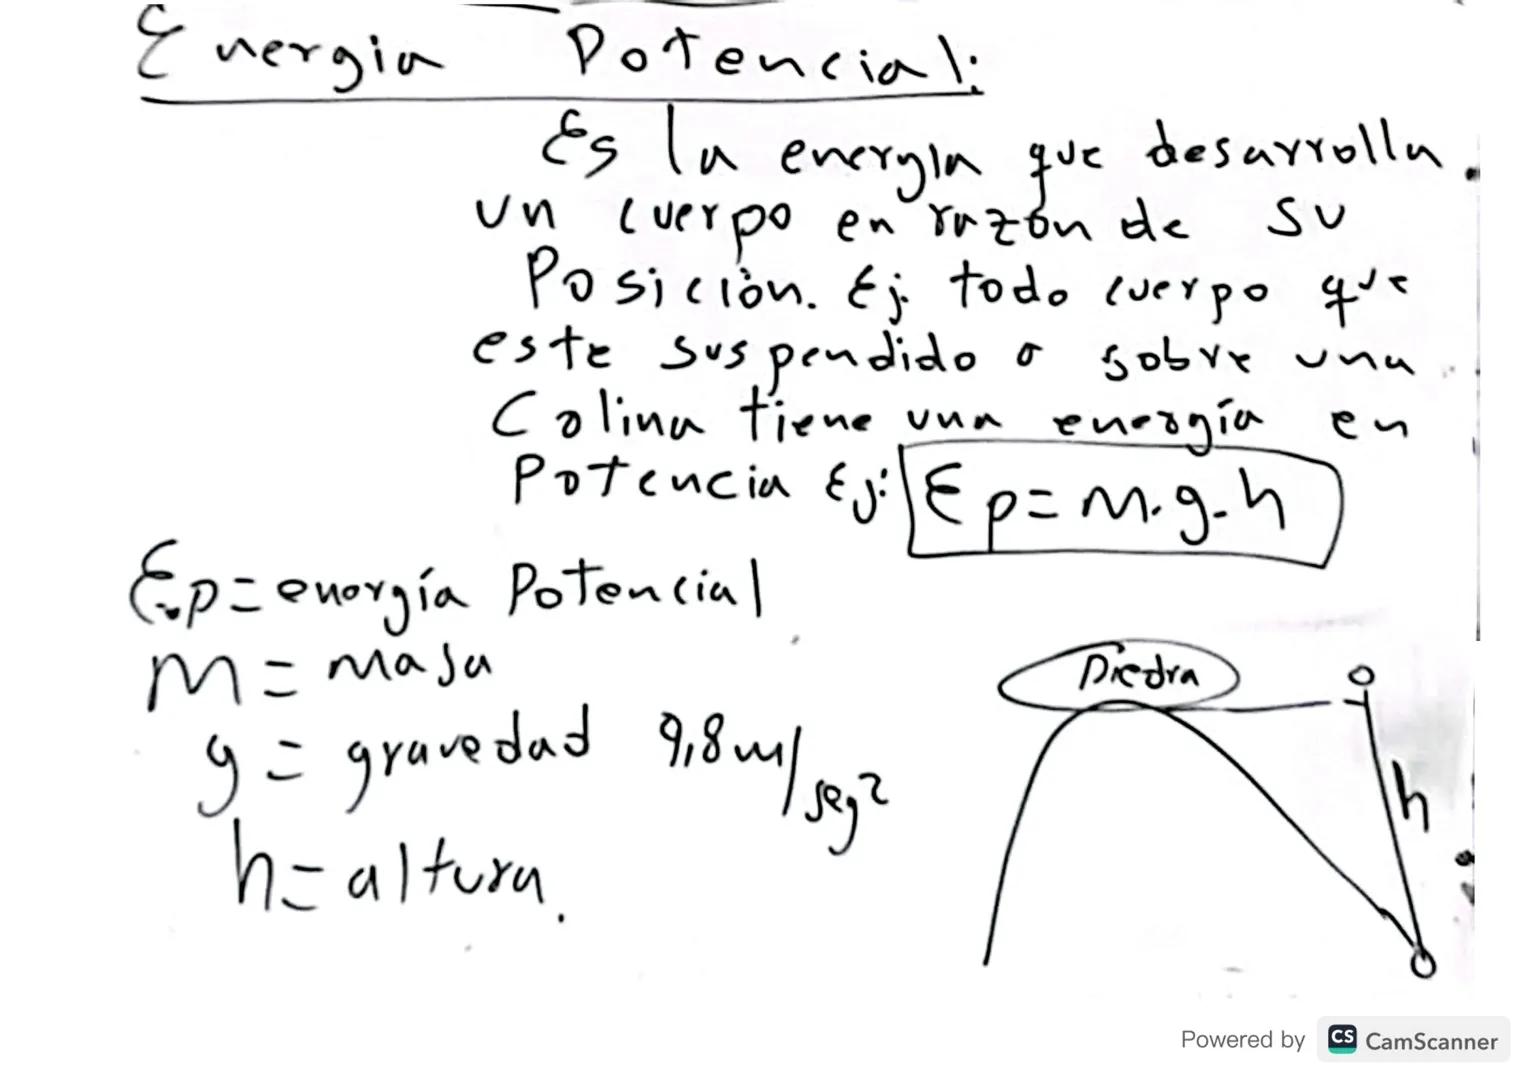 Energia Potencial:
Es la energia que desarrolla
un cuerpo en razón de su
Posición. Ej. todo cuerpo que
este suspendido o sobre una
Colina tiene una energía en
Potencia Ej: Ep=m.g.h
Ep=energía Potencial
m=masa
g=gravedad 9,8m/seg2
h=altura.
Piedra
h
Powered by CS CamScanner